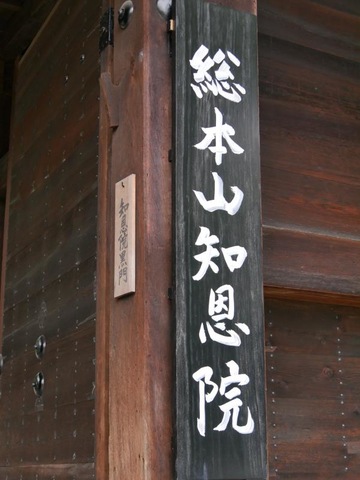 総本山知恩院
知恩院黒門